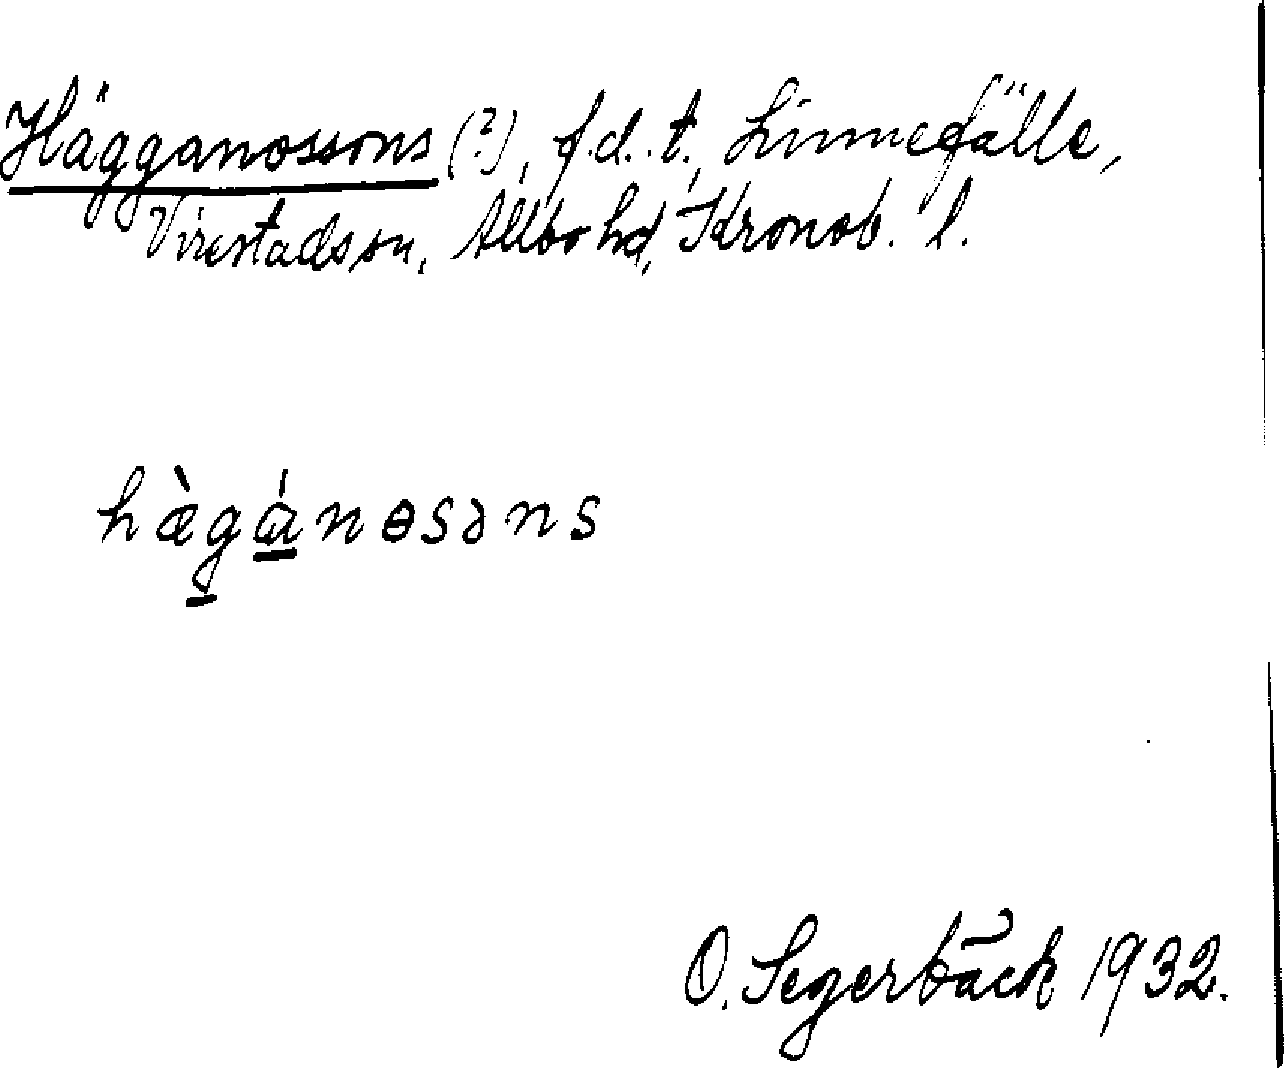 Hägganossons (?), f.d. t., Linnefälle,
Virestads sn, Allbo hd, Kronob. l.
hæ̀gánɵsəns
O. Segerbäck 1932.